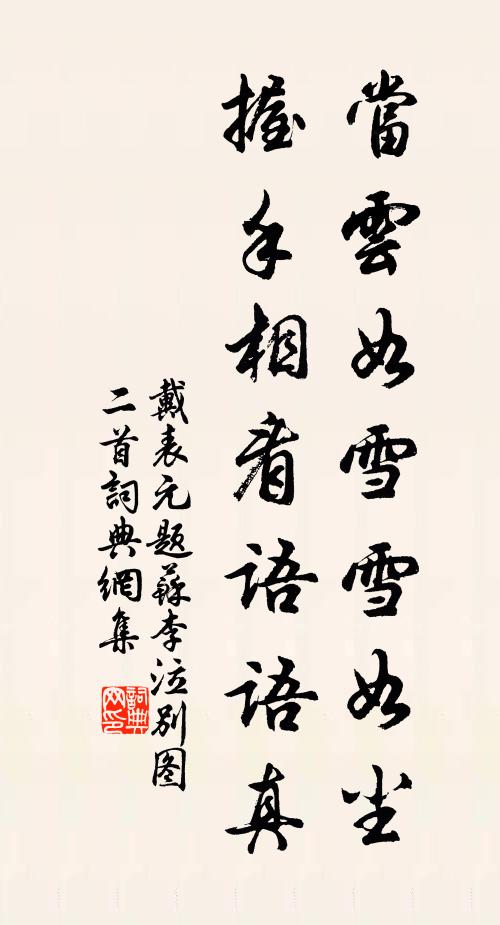 當雲如雪雪如尘
握手相看語語真
戴表元题蘇李泣別图
二首詞典網集
詞典
网印